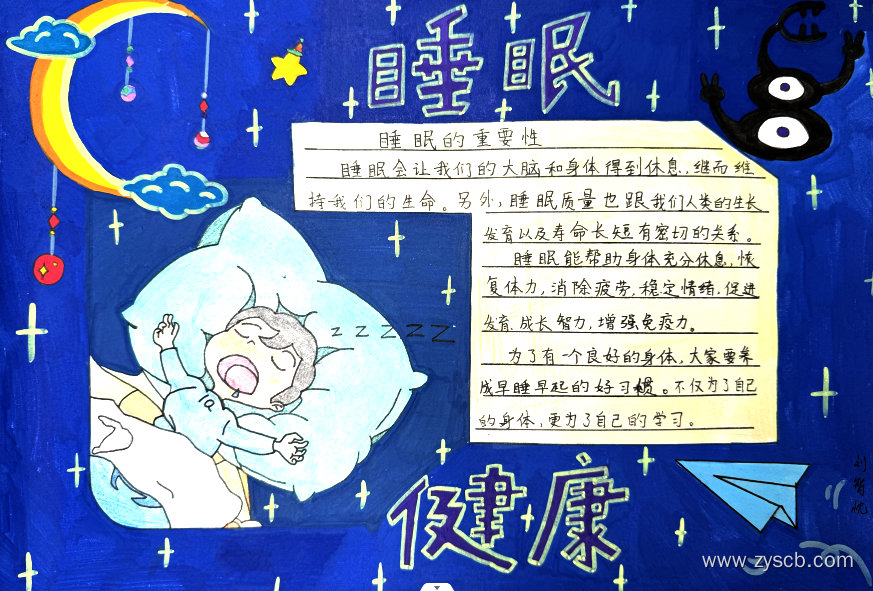 睡眠
睡眠的重要性
睡眠会让我们的大脑和身体得到休息,继而维
持我们的生命。另外,睡眠质量也跟我们人类的生长
发育以及寿命长短有密切的关系。
睡眠能帮助身体充分休息,恢
复体力,消除疲劳,稳定情绪,促进
发育、成长智力,增强免疫力。
为了有一个良好的身体,大家要养
成早睡早起的好习惯。不仅为了自己
的身体,更为了自己的学习。
zzzzz
健康
www.zyscb.com